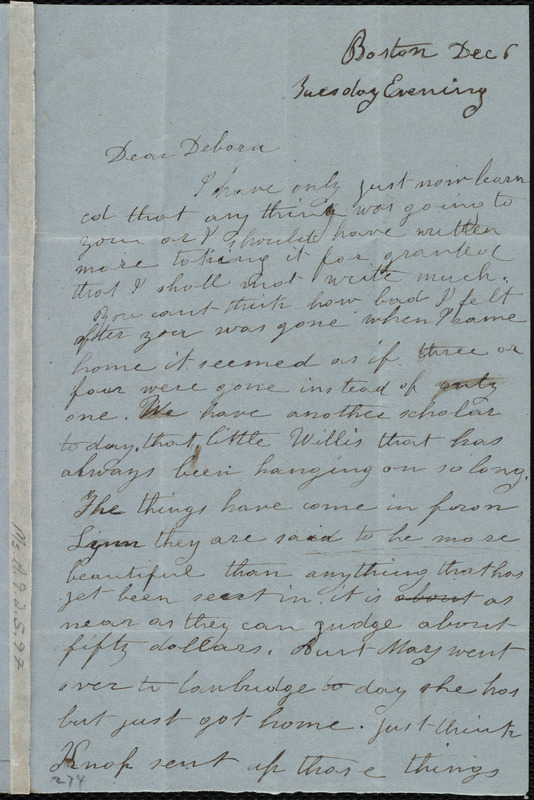 Boston Dec 6
Tuesday Evening
Dear Debora
I have only just now learn
ed that any thing was going to
you or I should have written
more taking it for granted
that I shall not write much.
You cant think how bad I felt
after you was gone when I came
home it seemed as if three or
four were gone instead of only
one. We have another scholar
to day, that little Willis that has
always been hanging on so long.
The things have come in from
Lynn they are said to be more
beautiful than anything that has
yet been sent in. it is about as
near as they can judge about
fifty dollars. Aunt Mary went
over to Cambridge to day she has
but just got home. Just think
Knap sent up those things
274
Ms. A.9.2.5.97